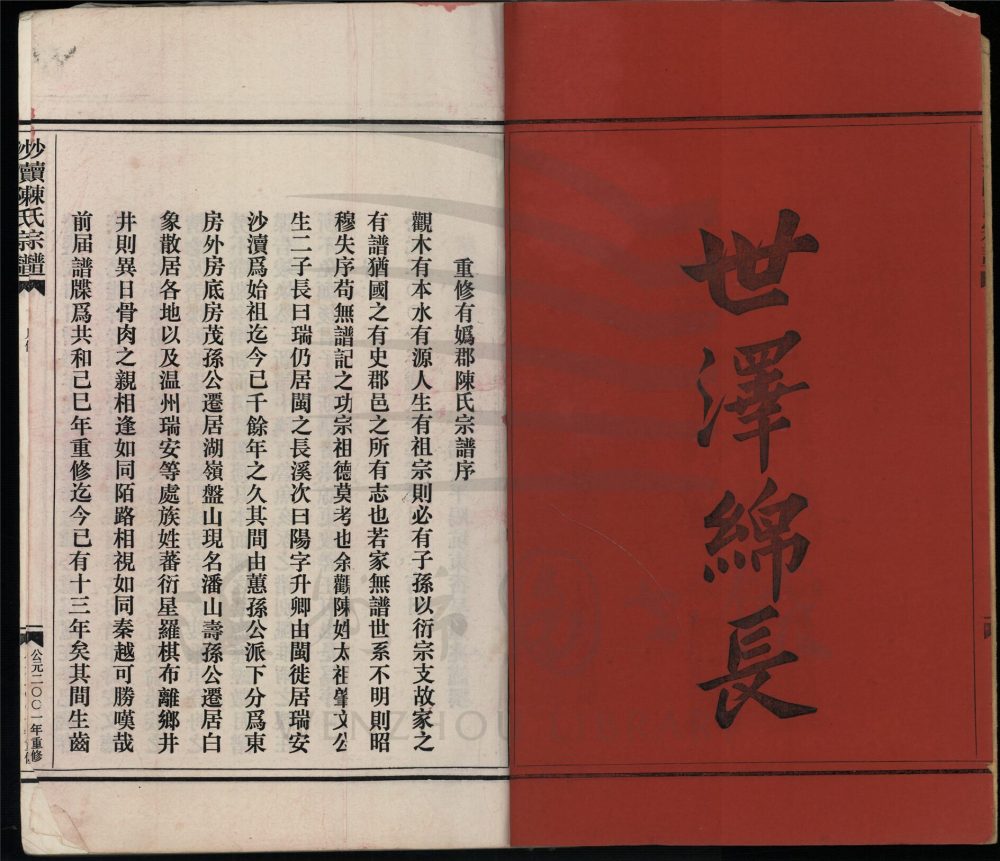 世澤綿長
重修有嬀郡陳氏宗譜序
觀木有本水有源人生有祖宗則必有子孫以衍宗支故家之
有譜猶國之有史郡邑之所有志也若家無譜世系不明則昭
穆失序苟無譜記之功宗祖德莫考也余觀陳姓太祖肇文公
生二子長曰瑞仍居閩之長溪次曰陽字升卿由閩徙居瑞安
沙瀆爲始祖迄今已千餘年之久其間由蕙孫公派下分爲東
房外房底房茂孫公遷居湖嶺盤山現名潘山壽孫公遷居白
象散居各地以及温州瑞安等處族姓蕃衍星羅棋布離鄉井
井則異日骨肉之親相逢如同陌路相視如同秦越可勝嘆哉
前届譜牒爲共和已巳年重修迄今已有十三年矣其間生齒
沙瀆陳氏宗譜
公元二〇〇一年重修
WENZHOU LIBRARY